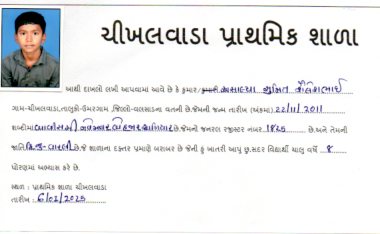 ચીખલવાડા પ્રાથમિક શાળા
આથી દાખલો લખી આપવામાં આવે છે કે કુમાર/કુમારી સુમિત શૈલેશભાઈ
ગામ-ચીખલવાડા,તાલુકો-ઉમરગામ ,જિલ્લો-વલસાડના વતની છે.જેમની જન્મ તારીખ (અંકમા) 22/11/2011
શબ્દોમાં બાવીસમી નવેમ્બર બેહજાર અગિયાર છે.જેમની જનરલ રજીસ્ટર નંબર 1825 છે.અને તેમની
જાતિ હિન્દુ-વારલી છે.જે શાળાના દફતર પ્રમાણે બરાબર છે જેની હું ખાતરી આપુ છુ.સદર વિદ્યાર્થી ચાલુ વર્ષે 8
ધોરણમાં અભ્યાસ કરે છે.
સ્થળ : પ્રાથમિક શાળા ચીખલવાડા
તારીખ :. 6/02/2025